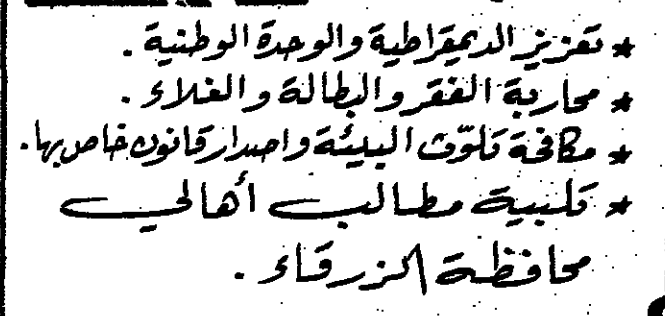 * تعزيز الديمقراطية والوحدة الوطنية .
* محاربة الفقر والبطالة والغلاء .
* مكافحة تلوّث البيئة واصدار قانون خاص بها .
* تلبية مطالب أهالي
محافظة الزرقاء .